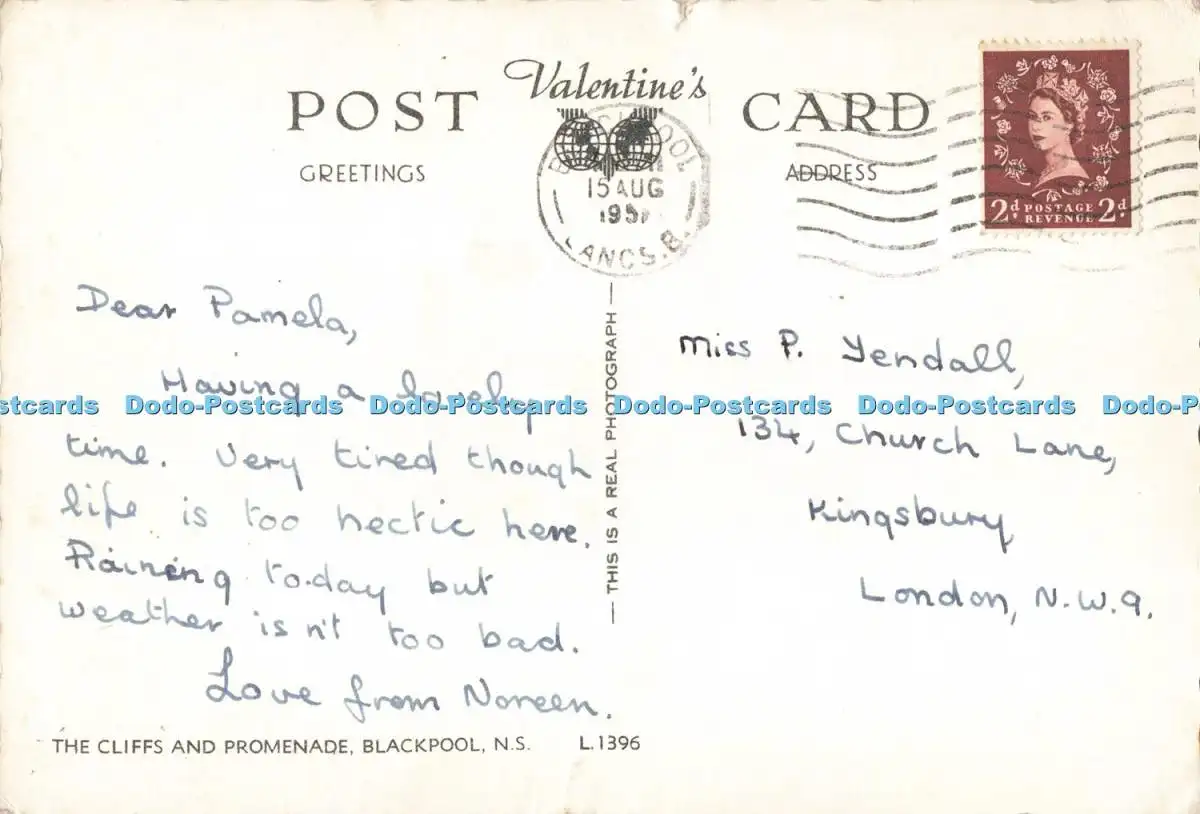 POST Valentine's CARD
GREETINGS
ADDRESS
BLACKPOOL
15 AUG
1957
LANCS. B.
2d POSTAGE REVENUE 2d
Dear Pamela,
Having a lovely
time. Very tired though
life is too hectic here.
Raining to-day but
weather isn't too bad.
Love from Noreen.
THE CLIFFS AND PROMENADE, BLACKPOOL, N.S. L.1396
— THIS IS A REAL PHOTOGRAPH —
Miss P. Yendall,
134, Church Lane,
Kingsbury
London, N.W.9.
Dodo-Postcards Dodo-Postcards Dodo-Postcards Dodo-Postcards